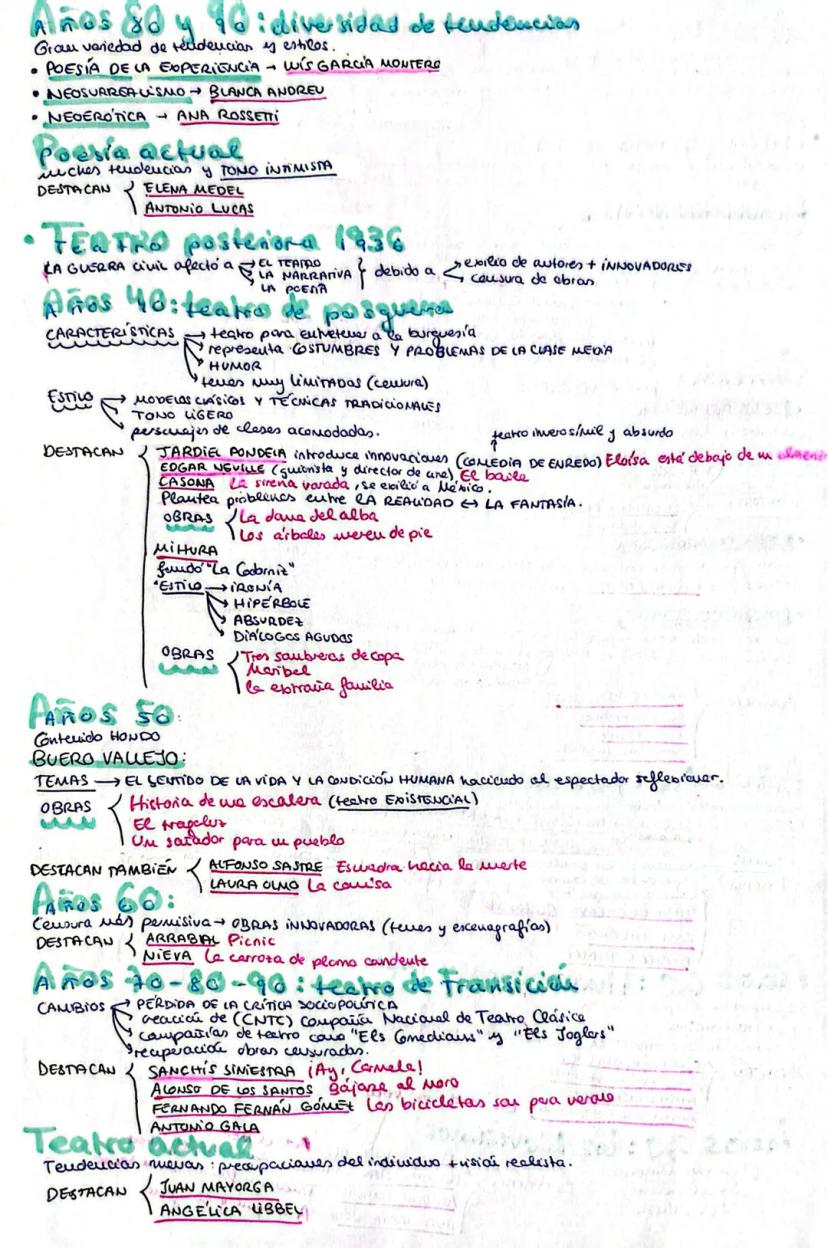 Años 80 y 90: diversidad de tendencias
Gran variedad de tendencias y estilos.
• POESÍA DE LA EXPERIENCIA → LUÍS GARCÍA MONTERO
• NEOSURREALISMO → BLANCA ANDREU
• NEOERÓTICA → ANA ROSSETTI
Poesía actual
muchas tendencias y TONO INTIMISTA
DESTACAN { ELENA MEDEL
ANTONIO LUCAS
• TEATRO posterior a 1936
LA GUERRA civil afectó a → EL TEATRO
LA NARRATIVA } debido a → exilio de autores + INNOVADORES
LA POESÍA → censura de obras
Años 40: teatro de posguerra
CARACTERÍSTICAS → teatro para entretener a la burguesía
→ representa COSTUMBRES Y PROBLEMAS DE LA CLASE MEDIA
→ HUMOR
→ temas muy limitados (censura)
ESTILO → MODELOS CLÁSICOS Y TÉCNICAS TRADICIONALES
→ TONO LIGERO
→ personajes de clases acomodadas.
teatro inverosímil y absurdo
DESTACAN { JARDIEL PONCELA introduce innovaciones (COMEDIA DE ENREDO) Eloísa está debajo de un almendro
EDGAR NEVILLE (guionista y director de cine), El baile
CASONA La sirena varada, se exilió a México.
Plantea problemas entre LA REALIDAD ↔ LA FANTASÍA.
OBRAS { La dama del alba
Los árboles mueren de pie
MIHURA
fundó "La Codorniz"
• ESTILO → IRONÍA
→ HIPÉRBOLE
→ ABSURDEZ
→ DIÁLOGOS AGUDOS
OBRAS { Tres sombreros de copa
Maribel
la extraña familia
Años 50:
Contenido HONDO
BUERO VALLEJO:
TEMAS → EL SENTIDO DE LA VIDA Y LA CONDICIÓN HUMANA haciendo al espectador reflexionar.
OBRAS { Historia de una escalera (teatro EXISTENCIAL)
El tragaluz
Un soñador para un pueblo
DESTACAN TAMBIÉN { ALFONSO SASTRE Escuadra hacia la muerte
LAURA OLMO La camisa
Años 60:
Censura más permisiva → OBRAS INNOVADORAS (temas y escenografías)
DESTACAN { ARRABAL Picnic
NIEVA La carroza de plomo candente
Años 70-80-90: teatro de Transición
CAMBIOS → PÉRDIDA DE LA CRÍTICA SOCIOPOLÍTICA
→ creación de (CNTC) Compañía Nacional de Teatro Clásico
→ compañías de teatro como "Els Comediants" y "Els Joglars"
→ recuperación obras censuradas.
DESTACAN { SANCHÍS SINIESTRA ¡Ay, Carmela!
ALONSO DE LOS SANTOS Bájase al moro
FERNANDO FERNÁN GÓMEZ Las bicicletas son para verano
ANTONIO GALA
Teatro actual
Tendencias nuevas: preocupaciones del individuo + visión realista.
DESTACAN { JUAN MAYORGA
ANGÉLICA LIBBEL